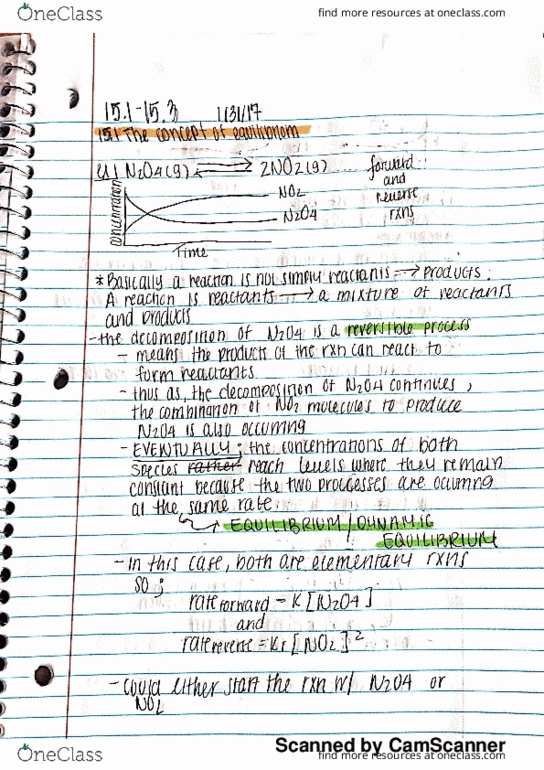 OneClass
find more resources at oneclass.com
15.1-15.3 1/31/17
15.1 The concept of equilibrium
N2O4(g) ⇌ 2NO2(g) forward
and
reverse
rxns
concentration
NO2
N2O4
Time
* Basically a reaction is not simply reactants → products;
A reaction is reactants → a mixture of reactants
and products
- the decomposition of N2O4 is a reversible process
- means the products of the rxn can react to
form reactants
- thus as, the decomposition of N2O4 continues,
the combination of NO2 molecules to produce
N2O4 is also occuring
- EVENTUALLY; the concentrations of both
species rather reach levels where they remain
constant because the two processes are ocurring
at the same rate.
→ EQUILIBRIUM / DYNAMIC
EQUILIBRIUM
- In this case, both are elementary rxns
so;
rate forward = K [N2O4]
and
rate reverse = Kr [NO2]²
- could either start the rxn w/ N2O4 or
NO2
Scanned by CamScanner
OneClass
find more resources at oneclass.com